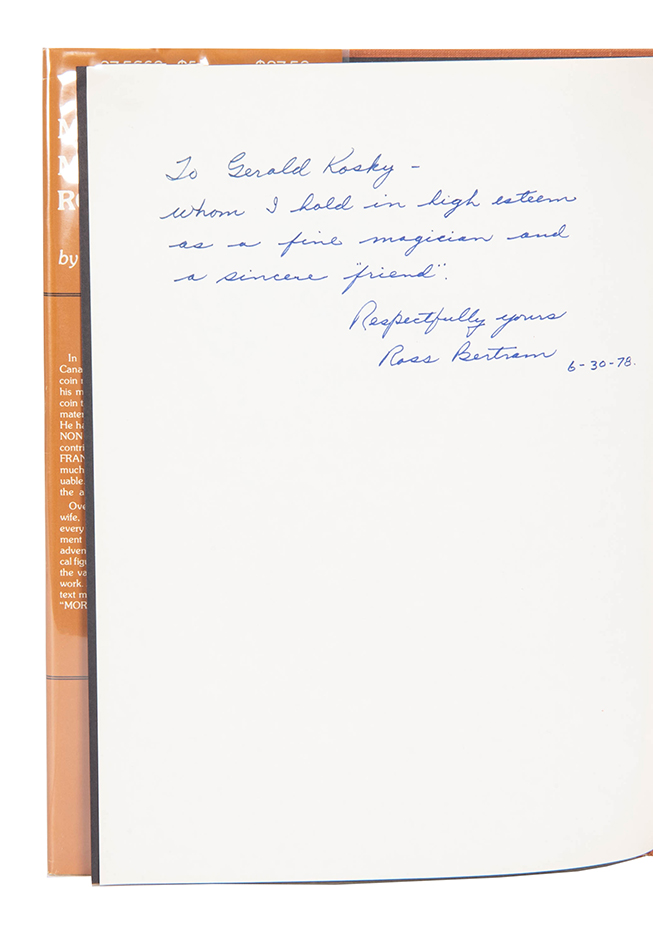 To Gerald Kosky -
whom I hold in high esteem
as a fine magician and
a sincere "friend".
Respectfully yours
Ross Bertram 6-30-78.
by
In
Cana
coin
his m
coin t
mater
He ha
NON
contri
FRAN
much
uable
the a
Ove
wife,
every
ment
adven
cal fig
the va
work.
text m
"MOR